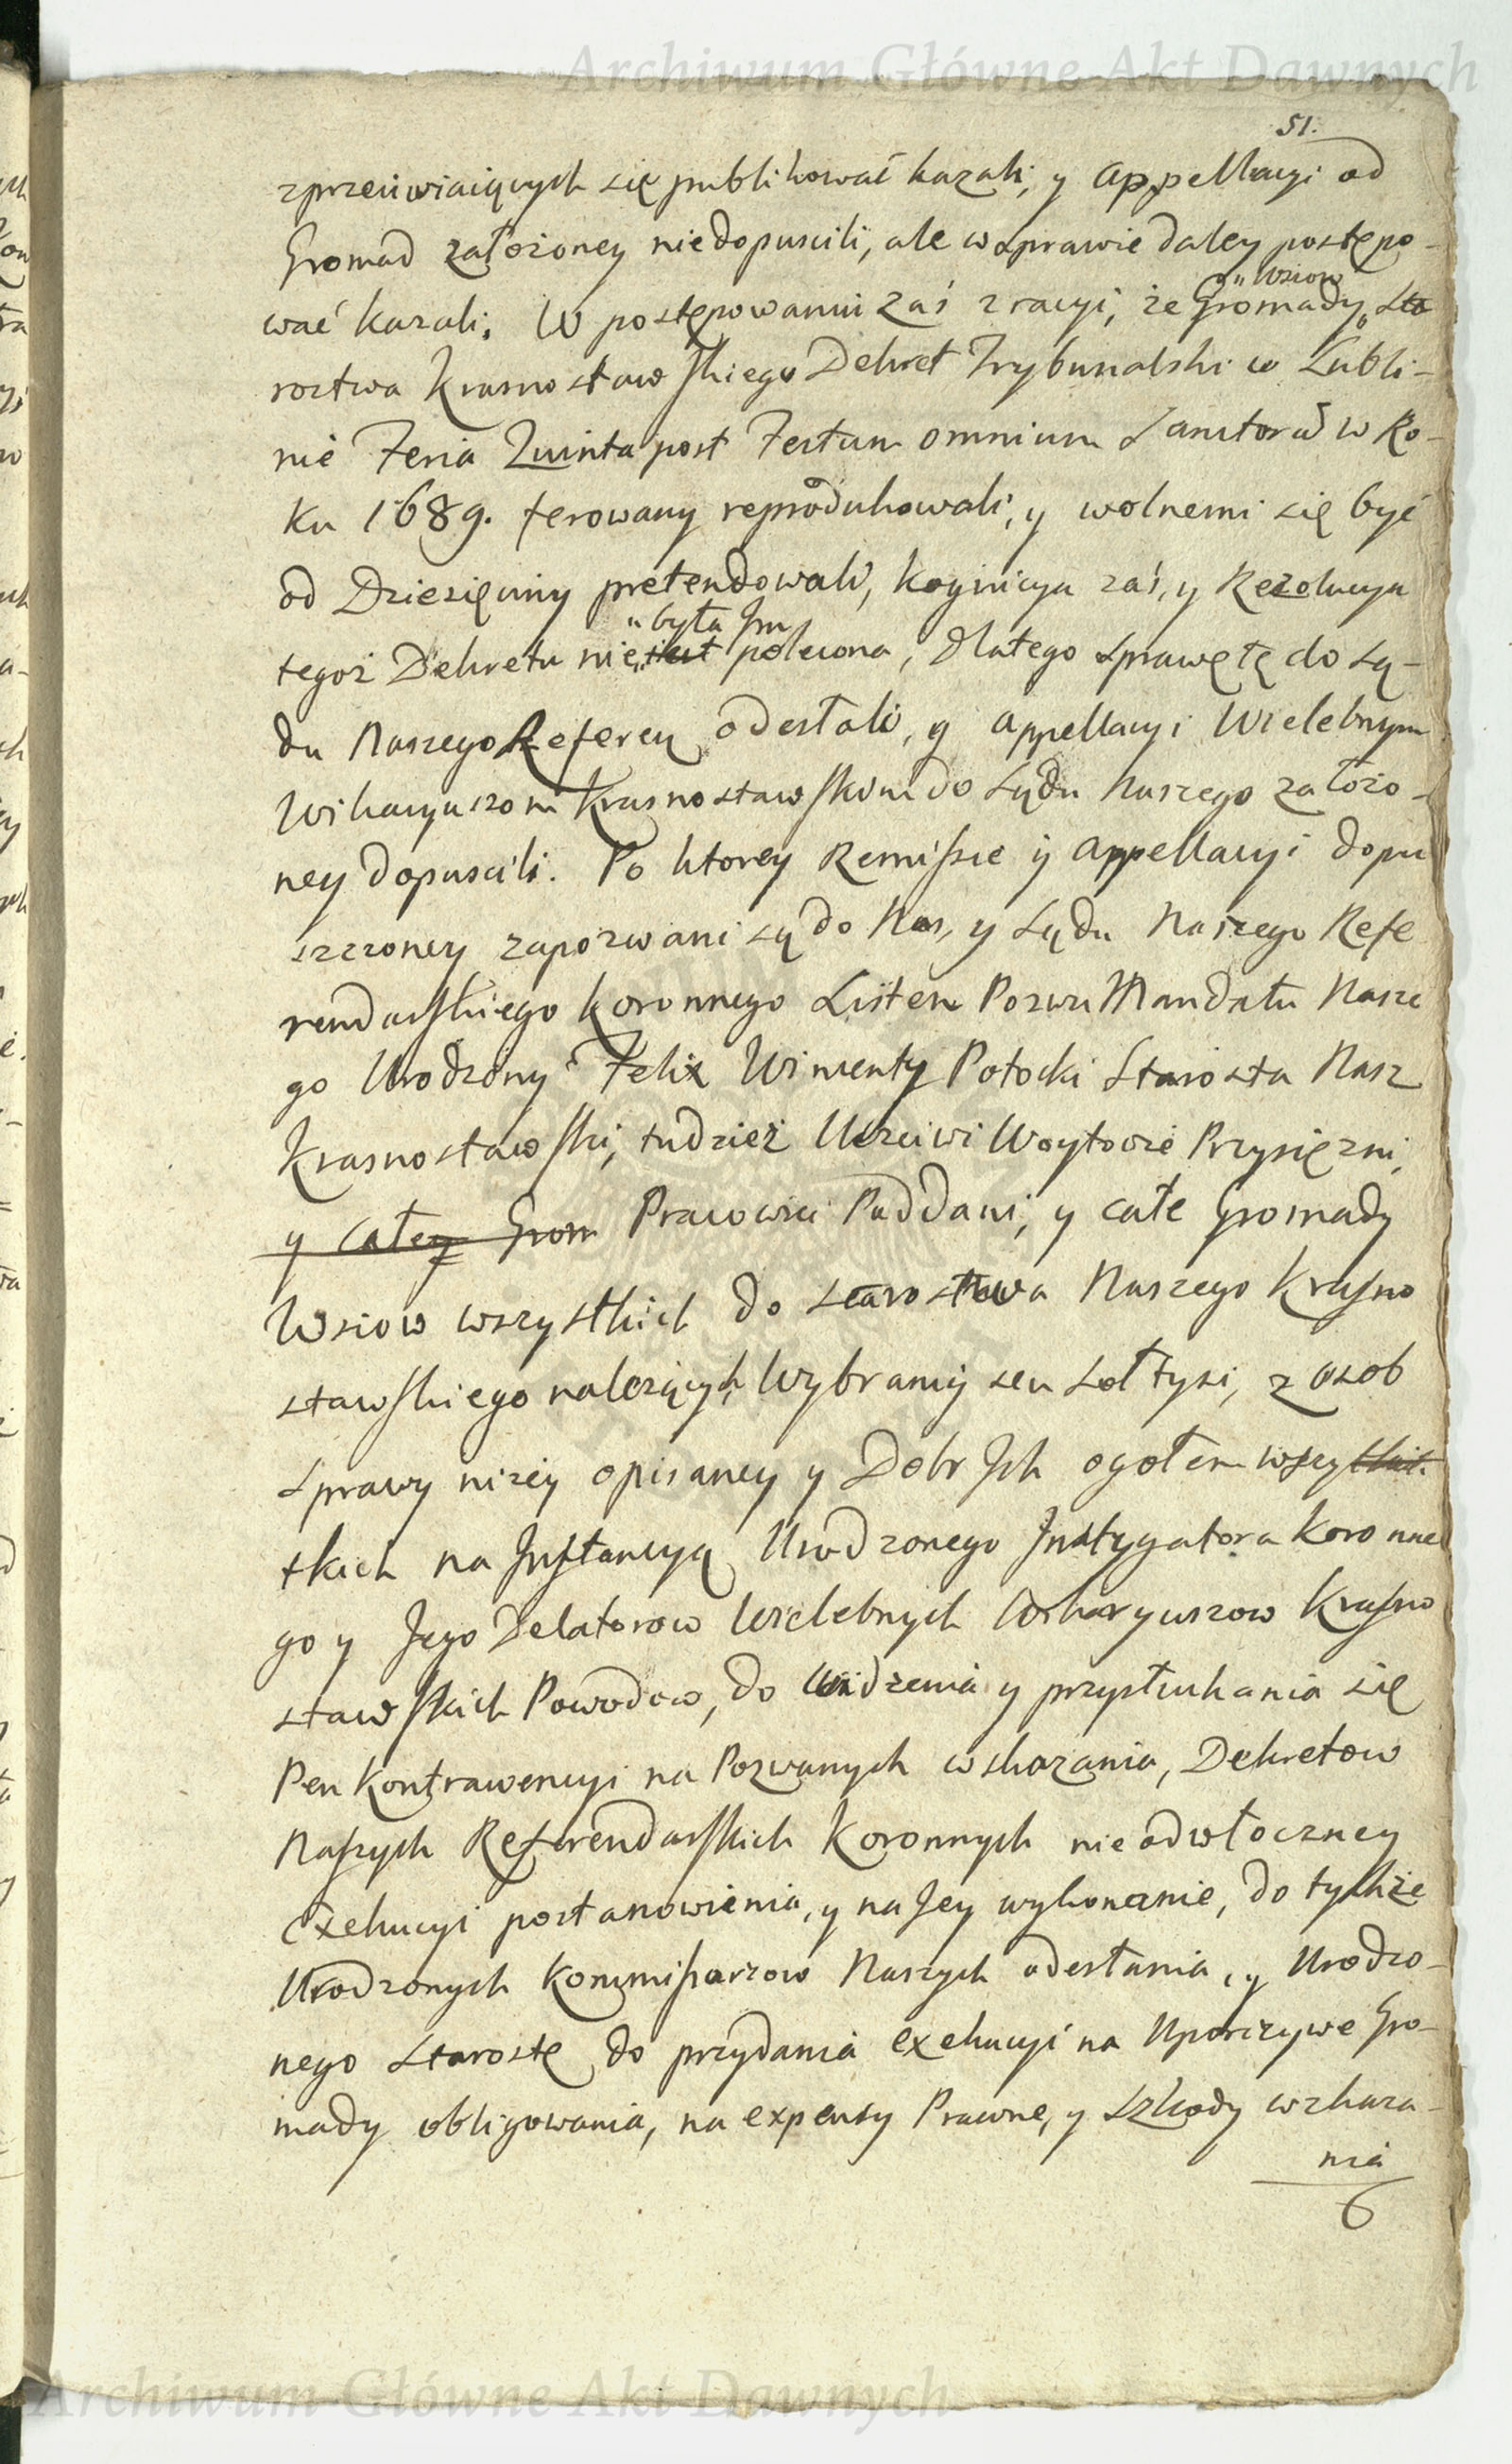 Archiwum Główne Akt Dawnych
51.
zprzeciwiaiących się publikować kazali, y appellacyi od
Gromad założoney niedopuscili, ale w sprawie daley postępo-
wać kazali. W postępowaniu zaś z racyi, że Gromady „Sta
„Wsiow
roztwa Krasnostawskiego Dekret Trybunalski w Lubli-
nie Feria Quinta post Festum omnium Sanctorũ w Ro-
ku 1689. ferowany reprodukowali, y wolnemi się być
od Dziesięciny pretendowali, kognicya zaś, y Rezolucya
„była Jm
tegoż Dekretu nie „iest polecona, dlatego sprawę tę do Są-
du Naszego Referen odesłali, y appellacyi Wielebnym
Wikaryuszom Krasnostawskim do Sądu Naszego założo-
ney dopuscili. Po ktorey Remissie y appellacyi dopu
szczoney zapozwani są do Nas, y Sądu Naszego Refe
rendarskiego Koronnego Listem Pozwu Mandatu Nasze
go Urodzony Felix Wincenty Potocki Starosta Nasz
Krasnostawski, tudzież Uczciwi Woytowie Przysiężni,
y całey Grom Pracowici Poddani, y całe Gromady
Wsiow wszystkich do Starostwa Naszego Krasno
stawskiego należących, Wybrancy seu Sołtysi, z osob
Sprawy niżey opisaney y Dobr Jch ogołem wszy
stkich na Jnstancyą Urodzonego Jnstygatora Koronne
go y Jego Delatorow Wielebnych Wikaryuszow Krasno
stawskich Powodow, do widzenia y przysłuchania się
Pen Kontrawencyi na Pozwanych wskazania, Dekretow
Naszych Referendarskich Koronnych nieodwłoczney
Exekucyi postanowienia, y na Jey wykonanie, do tychże
Urodzonych Kommissarzow Naszych odesłania, y Urodzo-
nego Starostę do przydania exekucyi na Uporczywe Gro-
mady obligowania, na expensy Prawne, y Szkody wskaza-
nia
6
Archiwum Główne Akt Dawnych